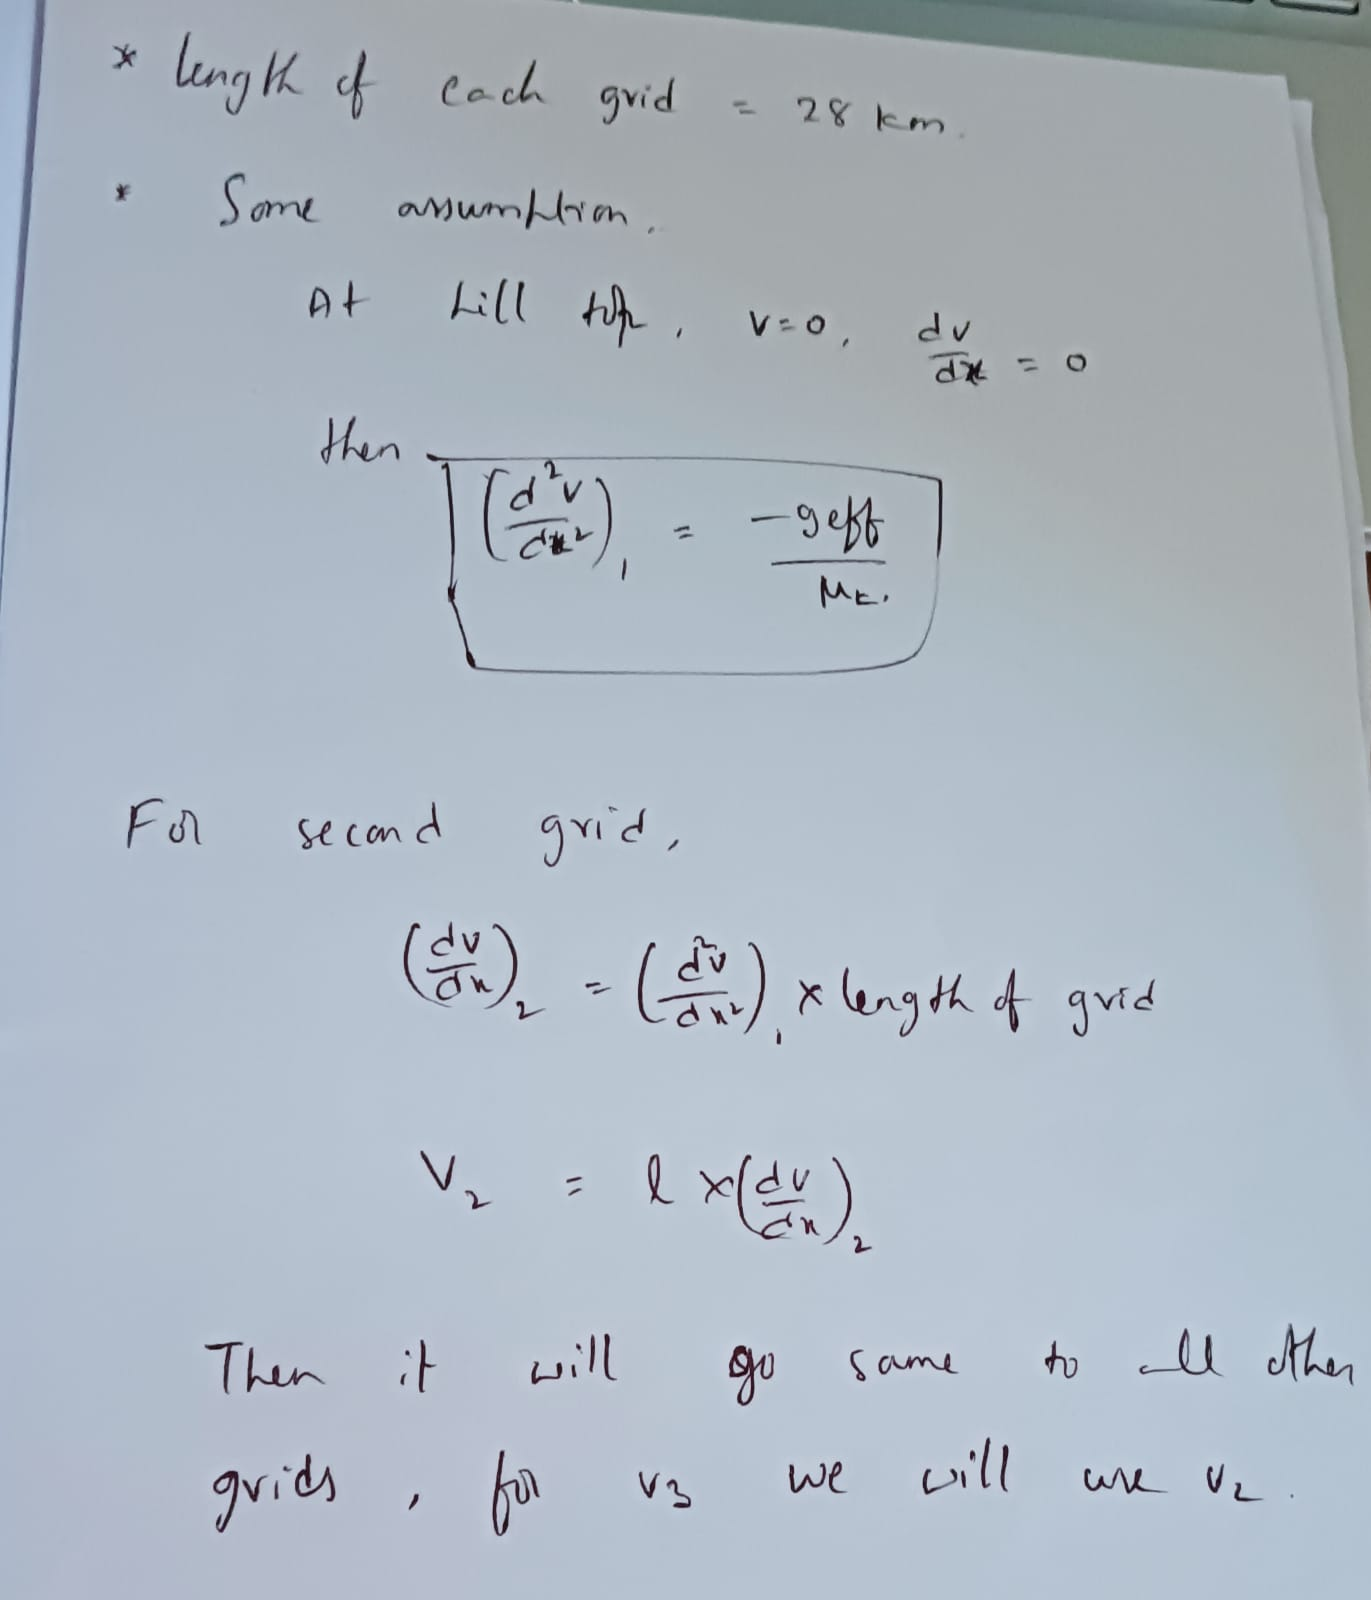 * length of each grid = 28 km.
* Some assumption.
At hill top, v=0, dv/dx = 0
then (d²v/dx²)₁ = -geff/Mt.
For second grid,
(dv/dx)₂ = (d²v/dx²)₁ x length of grid
V₂ = l x(dv/dx)₂
Then it will go same to all other
grids, for v₃ we will use v₂.